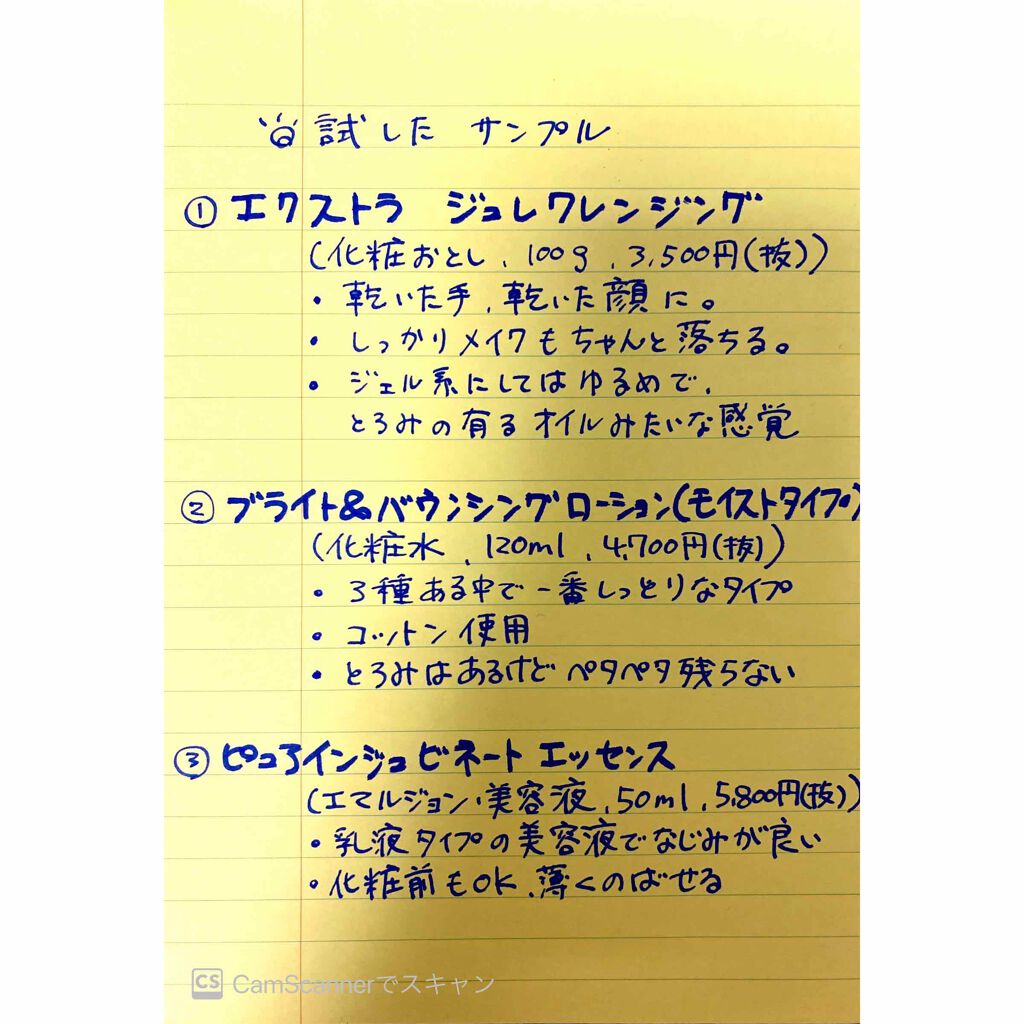 試した サンプル
① エクストラ ジュレクレンジング
(化粧おとし、100g、3,500円(抜))
・乾いた手、乾いた顔に。
・しっかりメイクもちゃんと落ちる。
・ジェル系にしてはゆるめで、
とろみの有るオイルみたいな感覚
② ブライト&バウンシングローション(モイストタイプ)
(化粧水、120ml、4,700円(抜))
・3種ある中で一番しっとりなタイプ
・コットン使用
・とろみはあるけどペタペタ残らない
③ ピコ3インジュビネート エッセンス
(エマルジョン・美容液、50ml、5,800円(抜))
・乳液タイプの美容液でなじみが良い
・化粧前もOK、薄くのばせる
CS CamScannerでスキャン